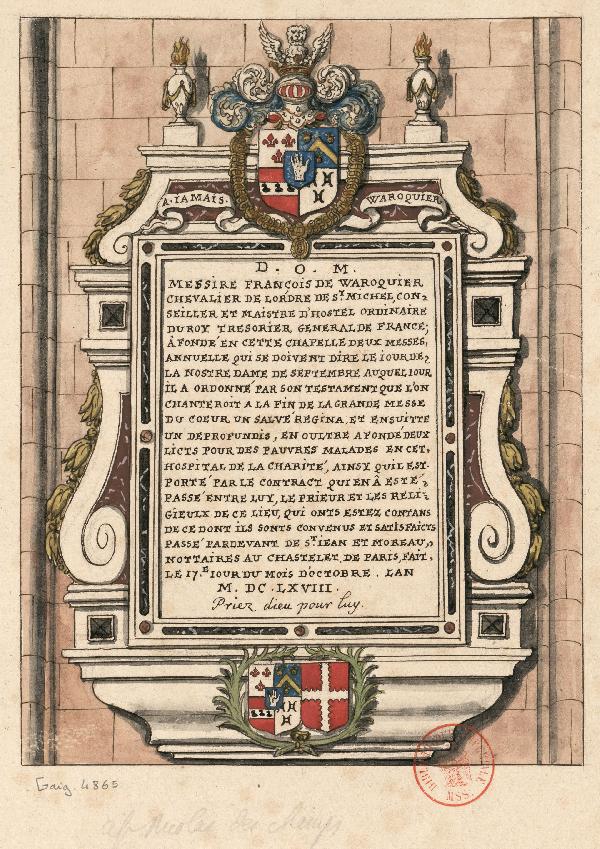 A·IAMAIS· WAROQUIER
D. O. M.
MESSIRE FRANÇOIS DE WAROQUIER
CHEVALIER DE LORDRE DE S.T MICHEL, CON=
SEILLER ET MAISTRE D'HOSTEL ORDINAIRE
DU ROY TRESORIER GENERAL DE FRANCE,
À FONDÉ EN CETTE CHAPELLE DEUX MESSES,
ANNUELLE QUI SE DOIVENT DIRE LE IOUR DE,
LA NOSTRE DAME DE SEPTEMBRE AUQUEL IOUR
IL A ORDONNÉ PAR SON TESTAMENT QUE L'ON
CHANTEROIT A LA FIN DE LA GRANDE MESSE
DU COEUR UN SALVÉ REGINA, ET ENSUITTE
UN DEPROFUNDIS, EN OULTRE A FONDÉ DEUX
LICTS POUR DES PAUVRES MALADES EN CET,
HOSPITAL DE LA CHARITÉ, AINSY QUIL EST
PORTÉ PAR LE CONTRACT QUI EN À ESTÉ,
PASSÉ ENTRE LUY, LE PRIEUR ET LES RELI=
GIEULX DE CE LIEU, QUI ONTS ESTEZ CONTANS
DE CE DONT ILS SONTS CONVENUS ET SATISFAICTS
PASSÉ PARDEVANT DE S.T IEAN ET MOREAU,
NOTTAIRES AU CHASTELET DE PARIS, FAIT
LE 17.E IOUR DU MOIS D'OCTOBRE . LAN
M. DC. LXVIII.
Priez dieu pour luy.
Gaig. 4865
MSS.